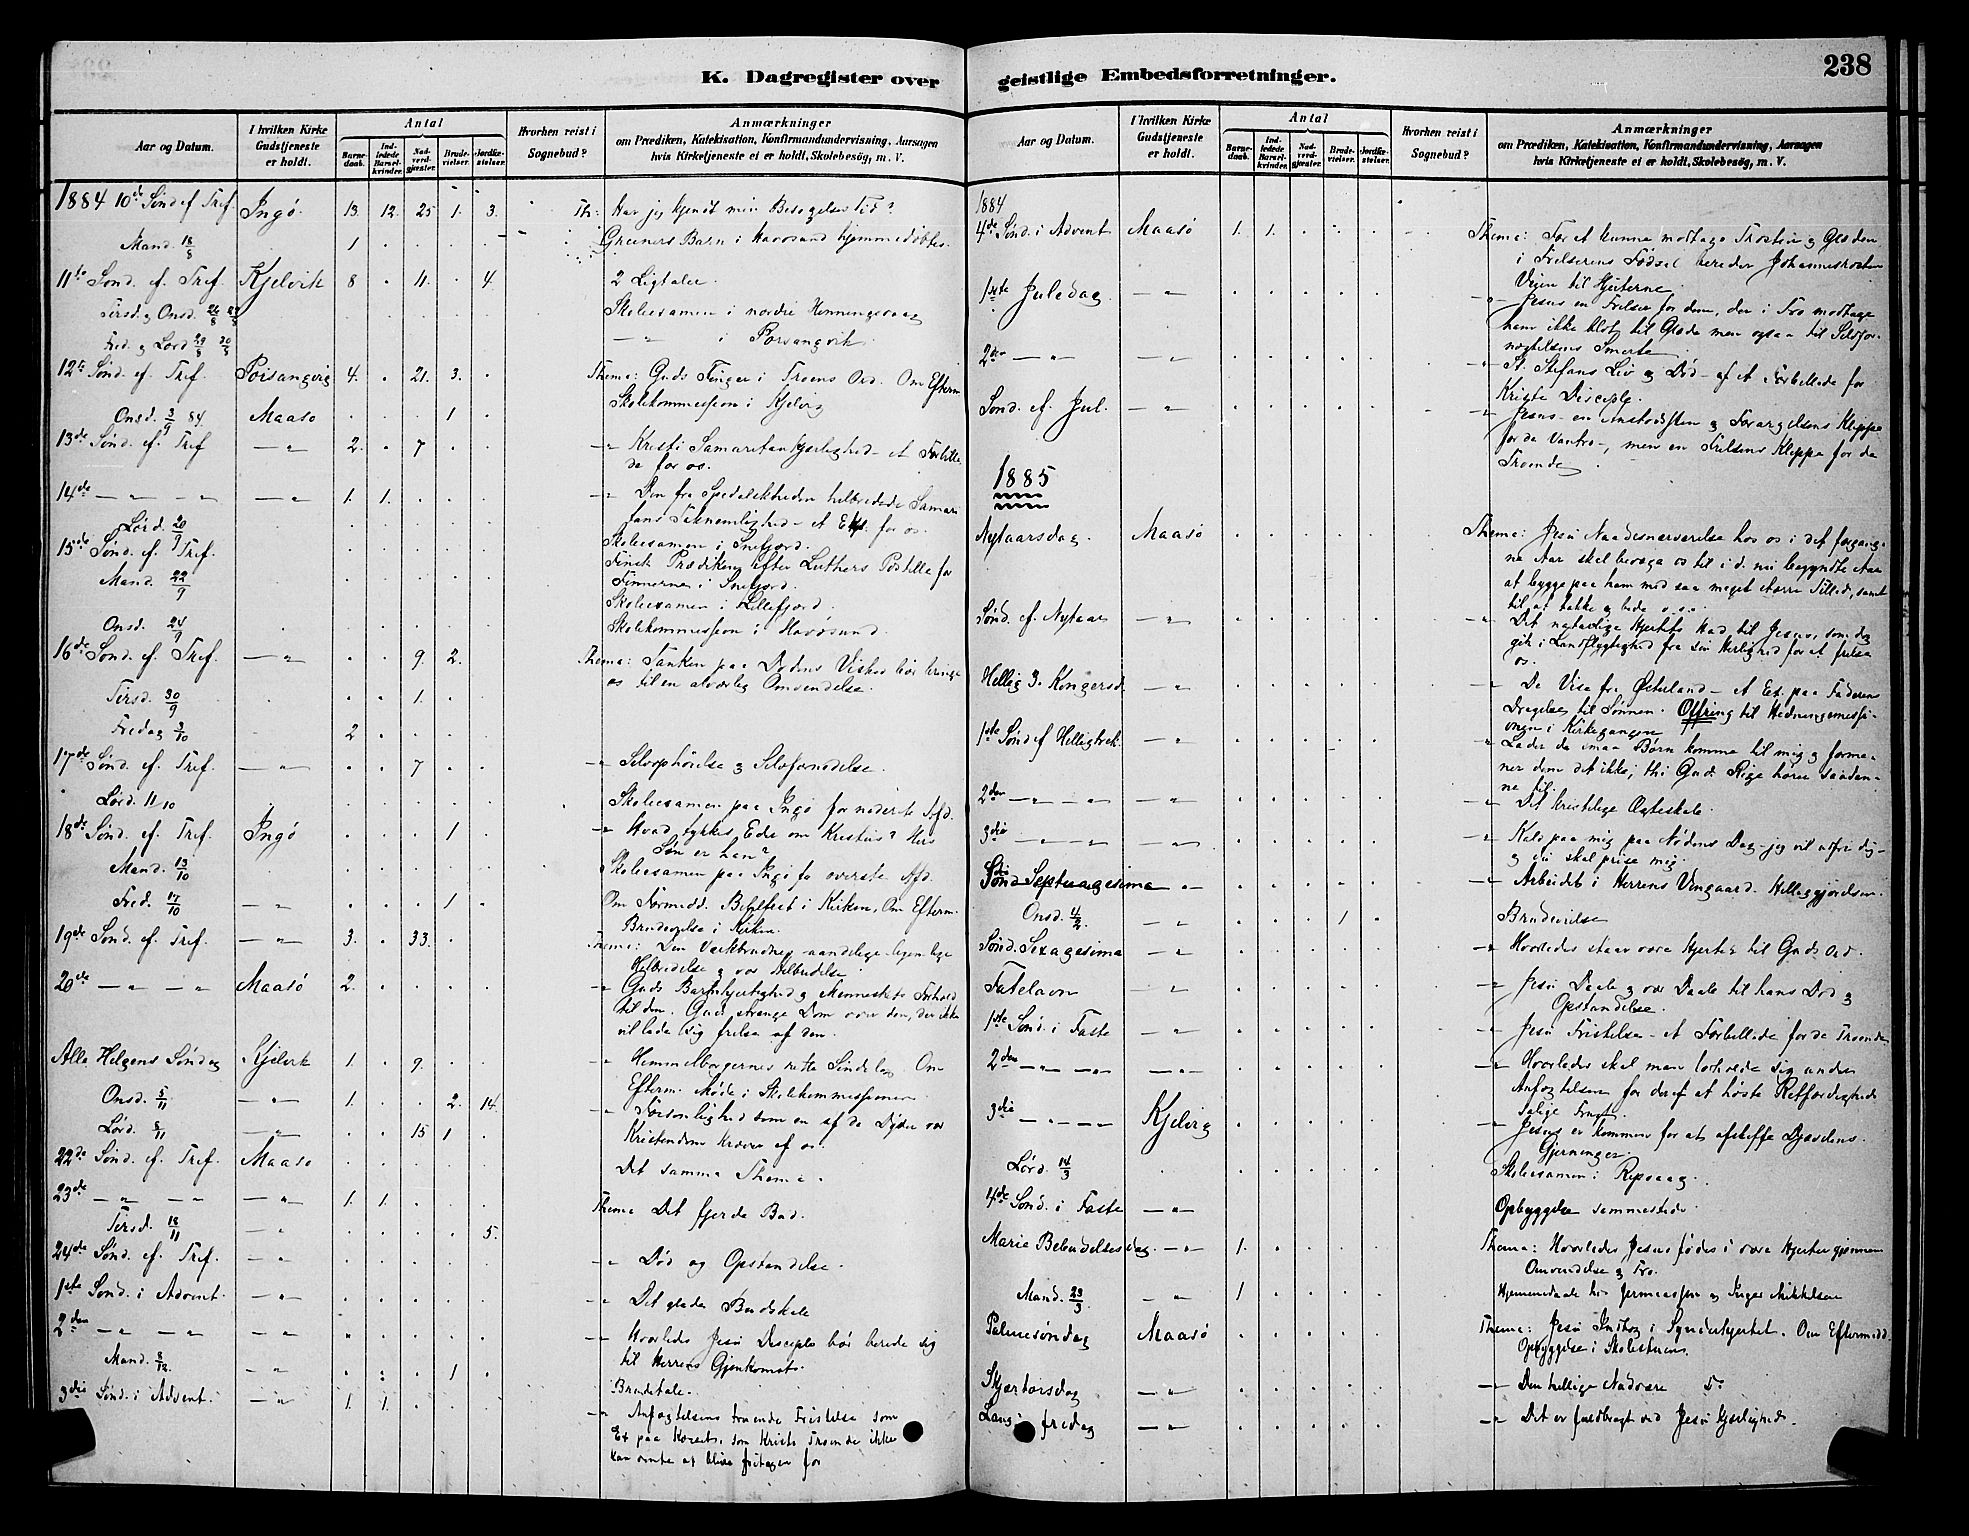 K. Dagregister over
Aar og Datum.
I hvilken Kirke Gudstjeneste er holdt.
Antal
Barnedaab.
Indledede Barselkvinder.
Nadverdgjæster.
Brudevielser.
Jordfæstelser.
Hvorhen reist i Sognebud?
Anmærkninger
om Prædiken, Katekisation, Konfirmandundervisning, Aarsagen
hvis Kirketjeneste ei er holdt, Skolebesög, m. V.
1884 10de Sønd ef Tref. Ingø. 13. 12. 25 1. 3. Th: Har jeg kjendt min Besøgelses Tid?
Mand. 18/8 1 Greeners Barn i Havøsund hjemmedøbt.
11te Sønd. ef. Tref. Kjelvik 8 11. 4. 2 Ligtaler.
Tirsd. og Onsd. 26/8 27/8 Skoleexamen i nordre Honningsvaag
Fred. og Lørd 29/8 30/8 — " — i Porsangvik.
12te Sønd. ef. Tref. Porsangvig 4. 21. 3. Thema: Guds Finger i Troens Ord. Om Efterm
Onsd. 3/9 84. Maasø 1 Skolekommission i Kjelvig
13de Sønd. ef. Tref — " — 2. 7 — " Kristi Samaritankjærlighed – et Forbille-
de for os.
14de — " — " — — " — 1. 1. — " Den fra Spedalskheden helbredede Samari
tans Taknemlighed – et Ex. for os.
Lørd. 20/9 Skoleexamen i Snefjord.
15de Sønd. ef. Tref. Finsk Prædiken efter Luthers Postille for
Finnerne i Snefjord.
Mand. 22/9 Skoleexamen i Lillefjord.
Onsd. 24/9 Skolekommission i Havøsund.
16de Sønd. ef. Tref. — " — 9. 2. Thema: Tanken paa Dødens Vished bør bringe
os til en alvorlig Omvendelse.
Tirsd. 30/9 1.
Fredag 3/10 2.
17de Sønd. ef. Tref. — " — 7 — " Selvophøielse og Selvfornedrelse.
Lørd. 11/10 Skoleexamen paa Ingø for nederste Afd.
18de Sønd. ef. Tref. Ingø 1 — " Hvad tykkes Eder om Kristus? Hvis
Søn er han?
Mand. 13/10 Skoleexamen paa Ingø for øverste Afd.
Fred. 17/10 — " — 1 Om Formidd. Bededest i Kirken, Om Efterm.
Brudevielse i Kirken.
19de Sønd. ef. Tref. — " — 3. 33. Thema: Den Værkbrudnes aandelige – legemlige
Helbredelse og vor Helbredelse.
20de — " — " — Maasø 2. — " Guds Barmhjertighed og Menneskets Forhold
til den. Guds strenge Dom over dem, der ikke
vil lade sig frelse af den.
Alle Helgens Søndag Kjelvik 1. 9. — " Himmelborgernes rette Sindelag. Om
Efterm. Møde i Skolekommissionen.
Onsd. 5/11 — " — 1. 2. 14. — " Forsonlighed som en af de Dyder vor
Lørd. 8/11 — " — 15 1 Kristendom kræver af os.
22de Sønd. ef. Tref. Maasø Det samme Thema.
23de — " — " — — " — 1. 1. Thema Det fjerde Bud.
Tirsd. 18/11 — " 5.
24de Sønd. ef. Tref. — " — — " Død og Opstandelse.
1ste Sønd. i Advent. — " — — " Det glade Budskab
2den — " — " — — " — — " Hvorledes Jesu Disciple bør berede sig
til Herrens Gjenkomst.
Mand. 8/12. — " — 1 Brudetale.
3die Sønd. i Advent. — " — 1. 1. — " Anfægtelsens troende Fristelse som
Ex paa Korset, som Kristi Troende ikke
kan vente at blive fritagen for
geistlige Embedsforretninger.
238
Aar og Datum.
I hvilken Kirke Gudstjeneste er holdt.
Antal
Barnedaab.
Indledede Barselkvinder.
Nadverdgjæster.
Brudevielser.
Jordfæstelser.
Hvorhen reist i Sognebud?
Anmærkninger
om Prædiken, Katekisation, Konfirmandundervisning, Aarsagen
hvis Kirketjeneste ei er holdt, Skolebesög, m. V.
1884
4de Sønd. i Advent Maasø 1. 1. Thema: For at kunne modtage Trosten og Glæden
i Frelserens Fødsel bereder Johannesrøsten
Veien til Hjerterne.
1ste Juledag — " — — " Jesus en Frelser for dem, der i Tro modtage
ham ikke blot til Glæde men ogsaa til Selvfor-
nægtelsens Smerte
2den — " — — " — — " St. Stefans Liv og Død – af et Forbillede for
Kristi Disciple.
Sønd. ef. Jul. — " — — " Jesus – en Anstødssten og Forargelsens Klippe
for de Vantro –, men en Frelsens Klippe for de
Troende.
1885
Nytaarsdag. Maasø Thema: Jesu Naadesnærværelse hos os i det forgang-
ne Aar skal bevæge os til i d. nu begyndte Aar
at bygge paa ham med saa meget større Tillid, samt
til at takke og bede o.s.v.
Sønd. ef. Nytaar — " — — " Det naturlige Hjertets Had til Jesus, som dog
gik i Landflygtighed fra sin Herlighed for at frelse
os.
Hellig 3. Kongersd. — " — — " De Vise fra Østerland – et Ex. paa Faderens
Dragelse til Sønnen. Offring til Hedningemissi-
onen i Kirkegangen
1ste Sønd ef Helligtrek. — " — " Lader de smaa Børn komme til mig og forme-
ner dem det ikke; thi Guds Rige hører saadan-
ne til.
2den — " — " — — " — — " Det kristelige Ægteskab.
3die — " — " — — " — — " Kald paa mig paa Nødens Dag – jeg vil udfri dig –
og du skal prise mig.
Sønd. Septuagesima — " — — " Arbeidet i Herrens Vingaard. Helliggjørelsen.
Onsd. 4/2 — " — 1 Brudevielse
Sønd. Sexagesima — " — — " Hvorledes staar vore Hjerter til Guds Ord.
Fastelavn — " — — " Jesu Daab og vor Daab til hans Død og
Opstandelse.
1ste Sønd. i Faste — " — — " Jesu Fristelse – et Forbillede for de Troende
2den — " — " — — " — — " Hvorledes skal man forholde sig under
Anfægtelsen for deraf at høste Retfærdigheds
salige Frugt.
3die — " — " — Kjelvig — " Jesus er kommen for at afskaffe Djævelens
Gjerninger.
Lørd. 14/3 Skoleexamen i Repvaag.
4de Sønd. i Faste — " — Opbyggelse sammesteds.
Marie Bebudelsesdag. — " — 1. Thema: Hvorledes Jesus fødes i vore Hjerter gjennem
Omvendelse og Tro.
Mand. 23/3 — " — 1 Hjemmedaab hos Jermiassen og Inger Mikkelsen
Palmesøndag Maasø Thema: Jesu Indtog i Synderhjertet. Om Eftermidd.
Opbyggelse i Skolestuen.
Skjærtorsdag — " — — " Den hellige Nadvere 5.
Langfredag — " — — " Det er fuldbragt ved Jesu Kjærlighed.